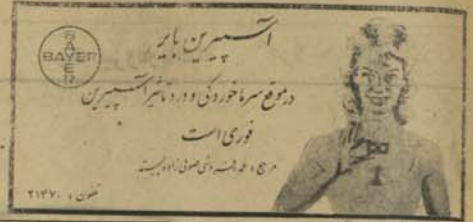 BAYER
BAYER
آسپیرین بایر
در موقع سرماخوردگی و درد تأثیر آسپیرین
فوری است
تلفون : ۲۱۴۷۰